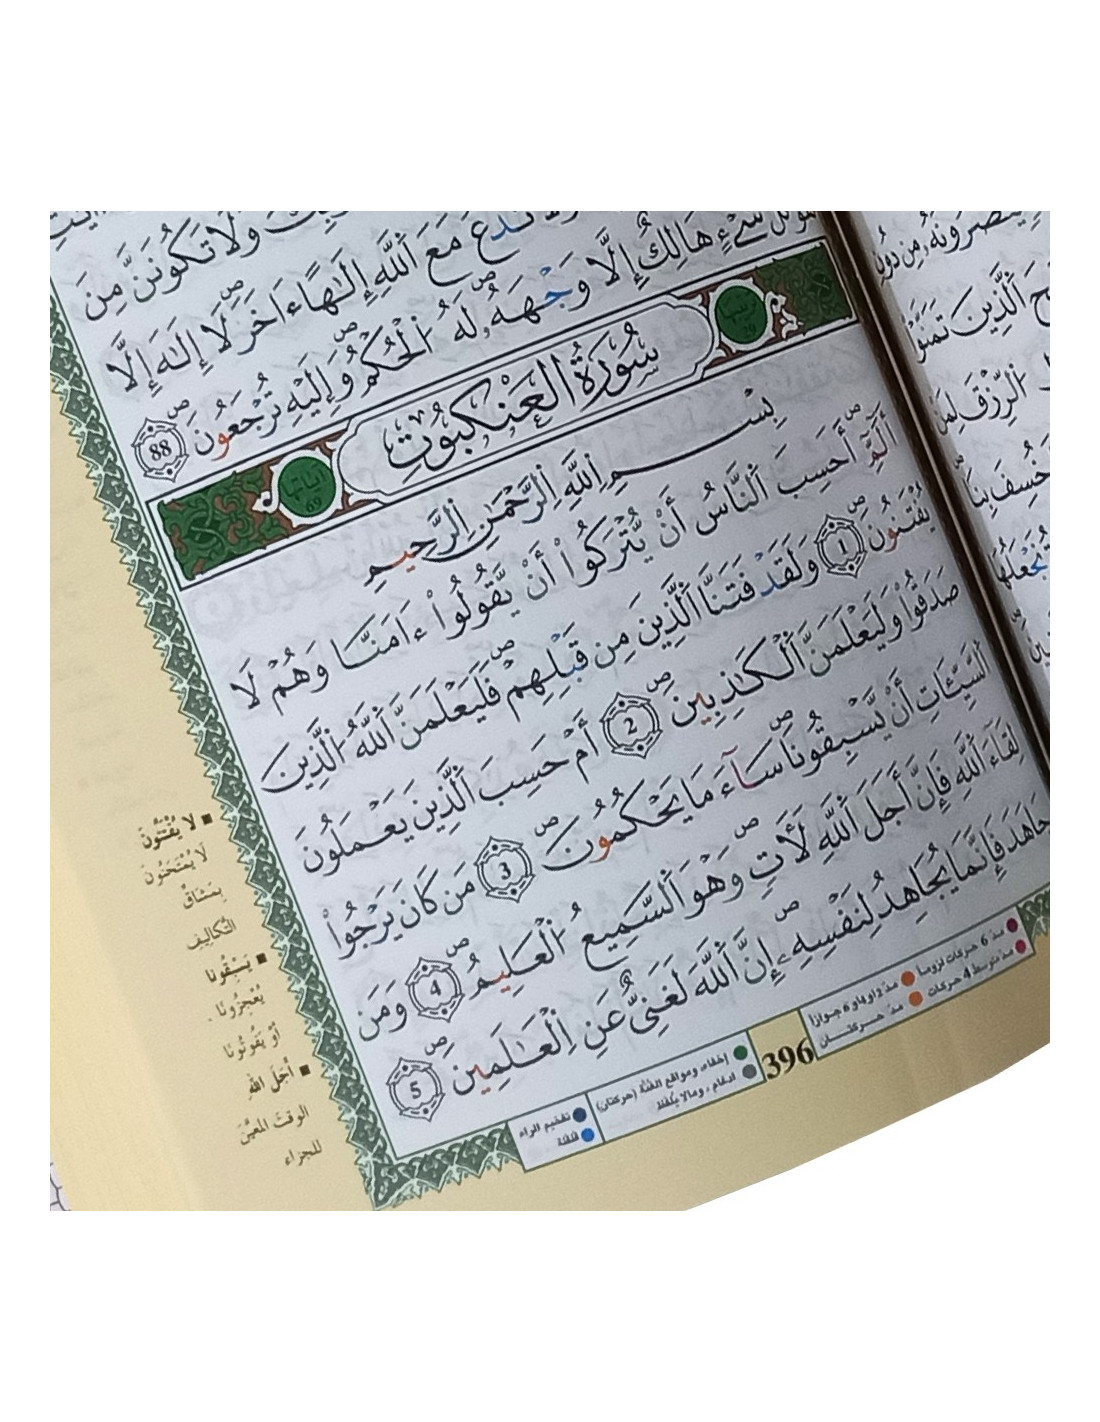 وَلَا تَكُونَنَّ مِنَ
تَدْعُ مَعَ ٱللَّهِ إِلَٰهًا ءَاخَرَ ۘ لَا إِلَٰهَ إِلَّا
شَيْءٍ هَالِكٌ إِلَّا وَجْهَهُۥ ۚ لَهُ ٱلْحُكْمُ وَإِلَيْهِ تُرْجَعُونَ 88
سُورَةُ الْعَنْكَبُوتِ
آياتها 69
بِسْمِ ٱللَّهِ ٱلرَّحْمَٰنِ ٱلرَّحِيمِ
أَلَٓمِّٓ أَحَسِبَ ٱلنَّاسُ أَنْ يُّتْرَكُوٓا۟ أَنْ يَّقُولُوٓا۟ ءَامَنَّا وَهُمْ لَا
يُفْتَنُونَ 1 وَلَقَدْ فَتَنَّا ٱلَّذِينَ مِن قَبْلِهِمْ فَلَيَعْلَمَنَّ ٱللَّهُ ٱلَّذِينَ
صَدَقُوا۟ وَلَيَعْلَمَنَّ ٱلْكَٰذِبِينَ 2 أَمْ حَسِبَ ٱلَّذِينَ يَعْمَلُونَ
ٱلسَّيِّـَٔاتِ أَنْ يَّسْبِقُونَا سَآءَ مَا يَحْكُمُونَ 3 مَن كَانَ يَرْجُوا۟
لِقَآءَ ٱللَّهِ فَإِنَّ أَجَلَ ٱللَّهِ لَأٓتٍ وَهْوَ ٱلسَّمِيعُ ٱلْعَلِيمُ 4 وَمَن
جَاهَدَ فَإِنَّمَا يُجَاهِدُ لِنَفْسِهِۦ إِنَّ ٱللَّهَ لَغَنِيٌّ عَنِ ٱلْعَٰلَمِينَ 5
▪ لا يُفْتَنُونَ
لَا يُمْتَحَنُونَ
بِمَشَاقِّ
التَّكَالِيفِ
▪ يَسْبِقُونا
يُعْجِزُونَا
أَوْ يَفُوتُونَا
▪ أَجَلَ اللهِ
الوقتَ المعيَّنَ
للجزاء
مدّ 6 حركات لزوما مدّ 2 او 4 او 6 جوازا
مدّ متوسط 4 حركات مدّ حركتان
396
إخفاء، ومواقع الغنّة (حركتان) تفخيم الراء
ادغام، وما لا يُلفظ قلقلة
ٱلَّذِينَ تَمَنَّوْا۟
ٱلرِّزْقَ لِمَن